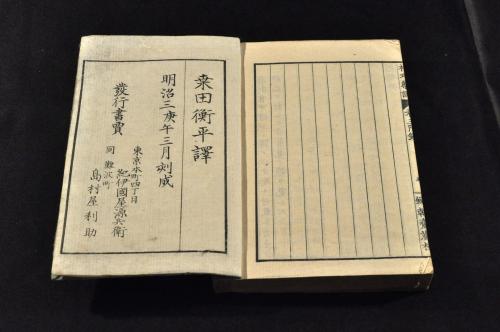 桑田衡平譯
明治三庚午三月刻成
發行書賈
東京本町四丁目
紀伊國屋源兵衛
同 難波町
島村屋利助